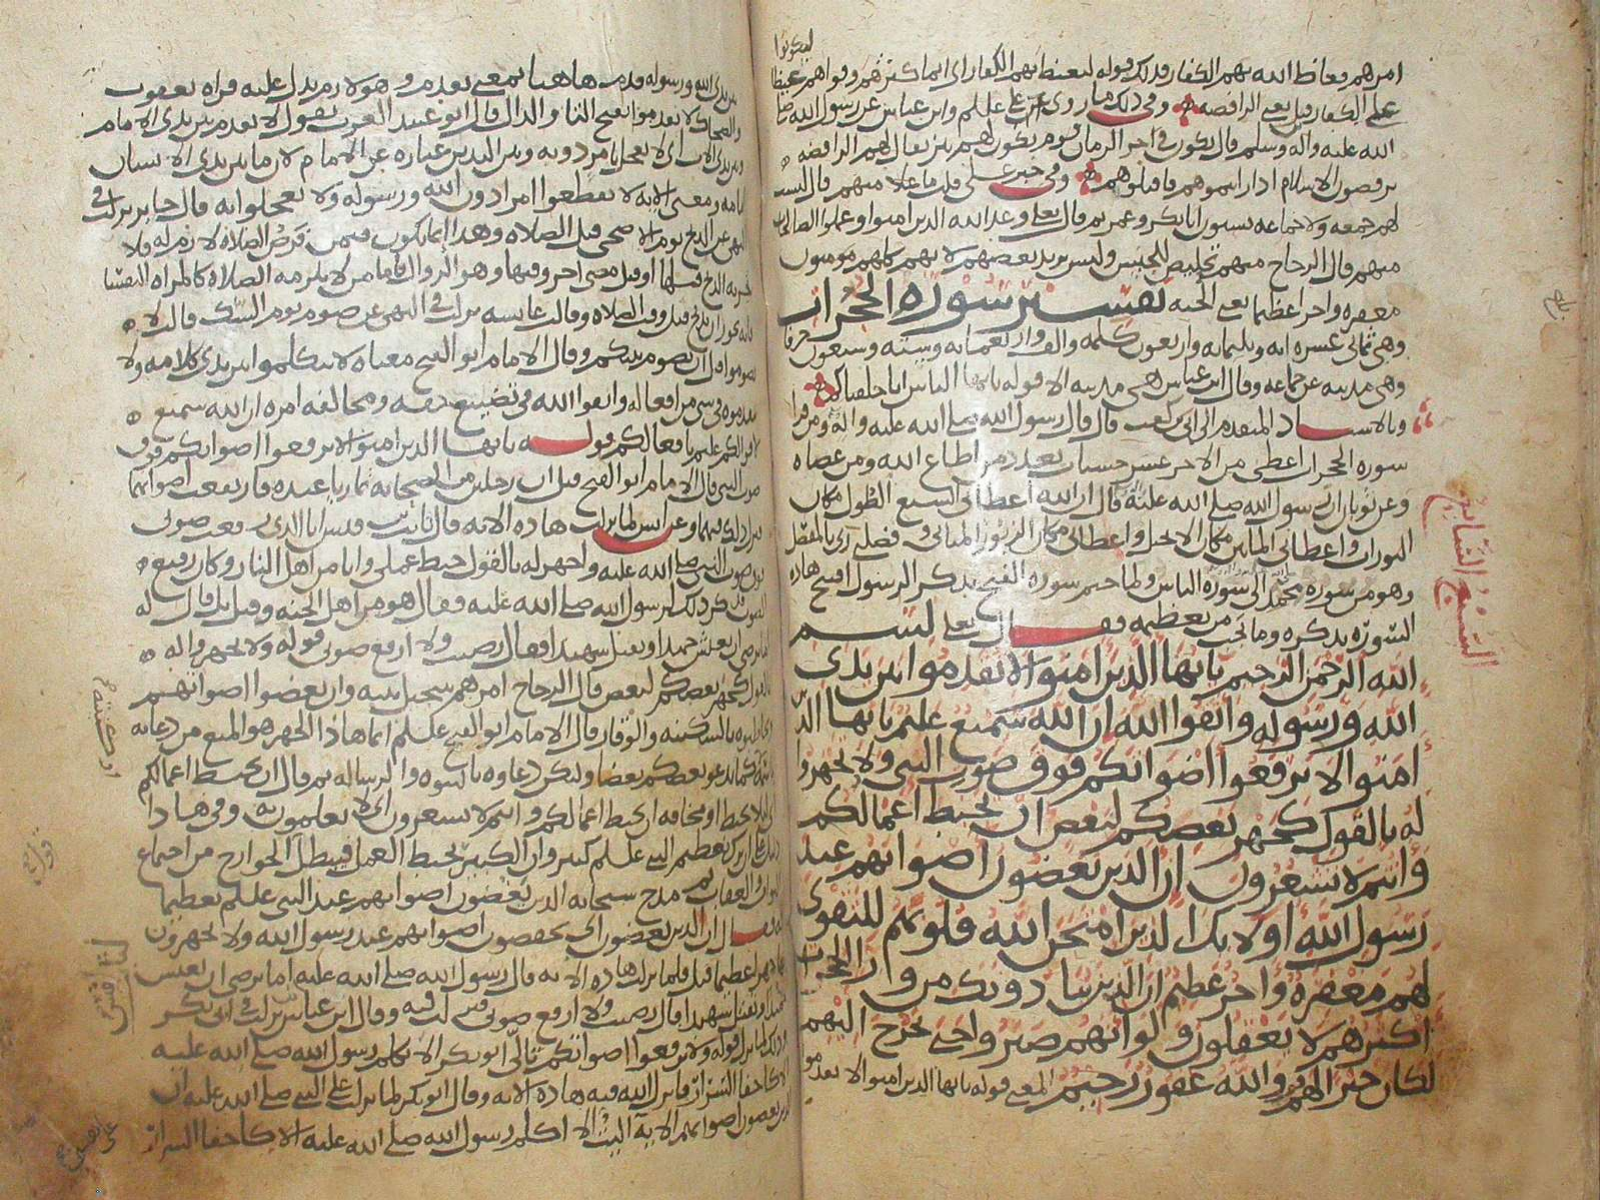 امرهم فغاظ الله بهم الكفار فذلك قوله ليغيظ بهم الكفار اى انما كثرهم وقواهم ليكونوا غيظا
على الكفار قيل يعنى الرافضه وفى ذلك ما روى عن على عللم وابن عباس عن رسول الله صلى
الله عليه واله وسلم قال يكون فى اخر الزمان قوم يكون لهم نبز يقال لهم الرافضه
يرفضون الاسلام اذا رايتموهم فاقتلوهم وفى خبر على قلت ما علامتهم قال ليست
لهم جمعه ولا جماعه يسبون ابا بكر وعمر ثم قال تعلى وعد الله الذين امنوا وعملوا الصالحات
منهم قال الزجاج منهم تخليص للجنس وليس يريد بعضهم لانهم كلهم مومنون
مغفره واجرا عظيما يعنى الجنه تفسير سورة الحجرات
وهى ثمانى عشره ايه وثلثمايه واربعون كلمه والف واربعمايه وسته وسبعون حرفا
وهى مدنيه عن جماعه وقال ابن عباس هى مدنيه الا قوله يايها الناس انا خلقناكم
وبالاسناد المتقدم الى ابى بن كعب قال قال رسول الله صلى الله عليه واله ومن قرا
سوره الحجرات اعطى من الاجر عشر حسنات بعدد من اطاع الله ومن عصاه
وعن ثوبان ان رسول الله صلى الله عليه قال ان الله اعطانى السبع الطول مكان
التوراه واعطانى المائين مكان الانجيل واعطانى مكان الزبور المثانى وفضلنى ربى بالمفصل
وهو من سوره محمد الى سورة الناس ولما ختم سوره الفتح بذكر الرسول افتتح هاذه
السورة بذكره وما يجب من تعظيمه فقال تعلى بسم
الله الرحمن الرحيم يايها الذين امنوا لا تقدموا بين يدى
الله ورسوله واتقوا الله ان الله سميع عليم يايها الذين
امنوا لا ترفعوا اصواتكم فوق صوت النبى ولا تجهروا
له بالقول كجهر بعضكم لبعض ان تحبط اعمالكم
وانتم لا تشعرون ان الذين يغضون اصواتهم عند
رسول الله اولائك الذين امتحن الله قلوبهم للتقوى
لهم مغفرة واجر عظيم ان الذين ينادونك من ورا الحجرات
اكثرهم لا يعقلون ولو انهم صبروا حتى تخرج اليهم
لكان خيرا لهم والله غفور رحيم المعنى قوله يايها الذين امنوا لا تقدموا
السبع المثانى
بين يدى الله ورسوله قدم هاهنا بمعنى تقدم وهو لازم يدل عليه قراه يعقوب
والضحاك لا تقدموا بفتح التا والدال قال ابو عبيد العرب تقول لا تقدم بين يدى الامام
وبين يدى الاب اى لا تعجل بامر دونه وبين اليدين عباره عن الامام لان ما بين يدى الانسان
امامه ومعنى الايه لا تقطعوا امرا دون الله ورسوله ولا تعجلوا به قال جابر نزلت فى
النهى عن الذبح يوم الاضحى قبل الصلاه وهذا انما يكون فيمن فرض الصلاة لازم له فلا
يجزيه الذبح قبلها او قبل مضى اخر وقتها وهو الزوال فاما من لا يلزمه الصلاه كالمراه النفسا
فانه يجوز ان يذبح قبل وقت الصلاه وقالت عايشه نزلت فى النهى عن صوم يوم الشك قالت لا
تصوموا قبل ان يصوم نبيكم وقال الامام ابو الفتح معناه لا تتكلموا بين يدى كلامه ولا
تقدموه فى شى من افعاله واتقوا الله فى تضييع حقه ومخالفه امره ان الله سميع
لاقوالكم عليم بافعالكم قوله يايها الذين امنوا لا ترفعوا اصواتكم فوق
صوت النبى قال الامام ابو الفتح قيل ان رجلين من الصحابه تماريا عنده فارتفعت اصواتهما
فنزلت فيهما وعن انس لما نزلت هاذه الايه قال ثابت بن قيس انا الذى رفعت صوتى
فوق صوت النبى صلى الله عليه واجهر له بالقول حبط عملى وانا من اهل النار وكان رفيع
الصوت فذكر ذلك لرسول الله صلى الله عليه فقال هو من اهل الجنه وقيل بل قال له
اما ترضى ان تعيش حميدا وتقتل شهيدا فقال رضيت ولا ارفع صوتى قوله ولا تجهروا له
بالقول كجهر بعضكم لبعض قال الزجاج امرهم بتبجيل نبيه وان يغضوا اصواتهم
ويخاطبوه بالسكينه والوقار قال الامام ابو الفتح علسلم انما هاذا الجهر هو المنع من دعايه
باسمه كما يدعو بعضكم بعضا ولتكن دعاوه بالنبوه والرساله ثم قال ان تحبط اعمالكم
اى ليلا تحبط او مخافه ان تحبط اعمالكم وانتم لا تشعرون اى لا تعلمون به وفى هاذا
دليل على ان ترك تعظيم النبى علسلم كبير وان الكبير يحبط العمل فيبطل قول الخوارج من اجتماع
الثواب والعقاب ثم مدح سبحانه الذين يغضون اصواتهم عند النبى علسلم تعظيما
له فقال ان الذين يغضون اى يخفضون اصواتهم عند رسول الله ولا يجهرون
جهرا عظيما قيل فلما نزلت هاذه الايه قال رسول الله صلى الله عليه اما ترضى ان تعيش
حميدا وتقتل شهيدا قال رضيت ولا ارفع صوتى فنزلت فيه وقال ابن عباس نزلت فى ابى بكر
وذلك لما نزل قوله ولا ترفعوا اصواتكم تالى ابو بكر الا يكلم رسول الله صلى الله عليه
الا كاخفا السرار فانزل الله فيه هاذه الايه وقال ابو بكر لما نزلت على النبى صلى الله عليه ان
الذين يغضون اصواتهم الايه اليت الا اكلم رسول الله صلى الله عليه الا كاخفا السرار